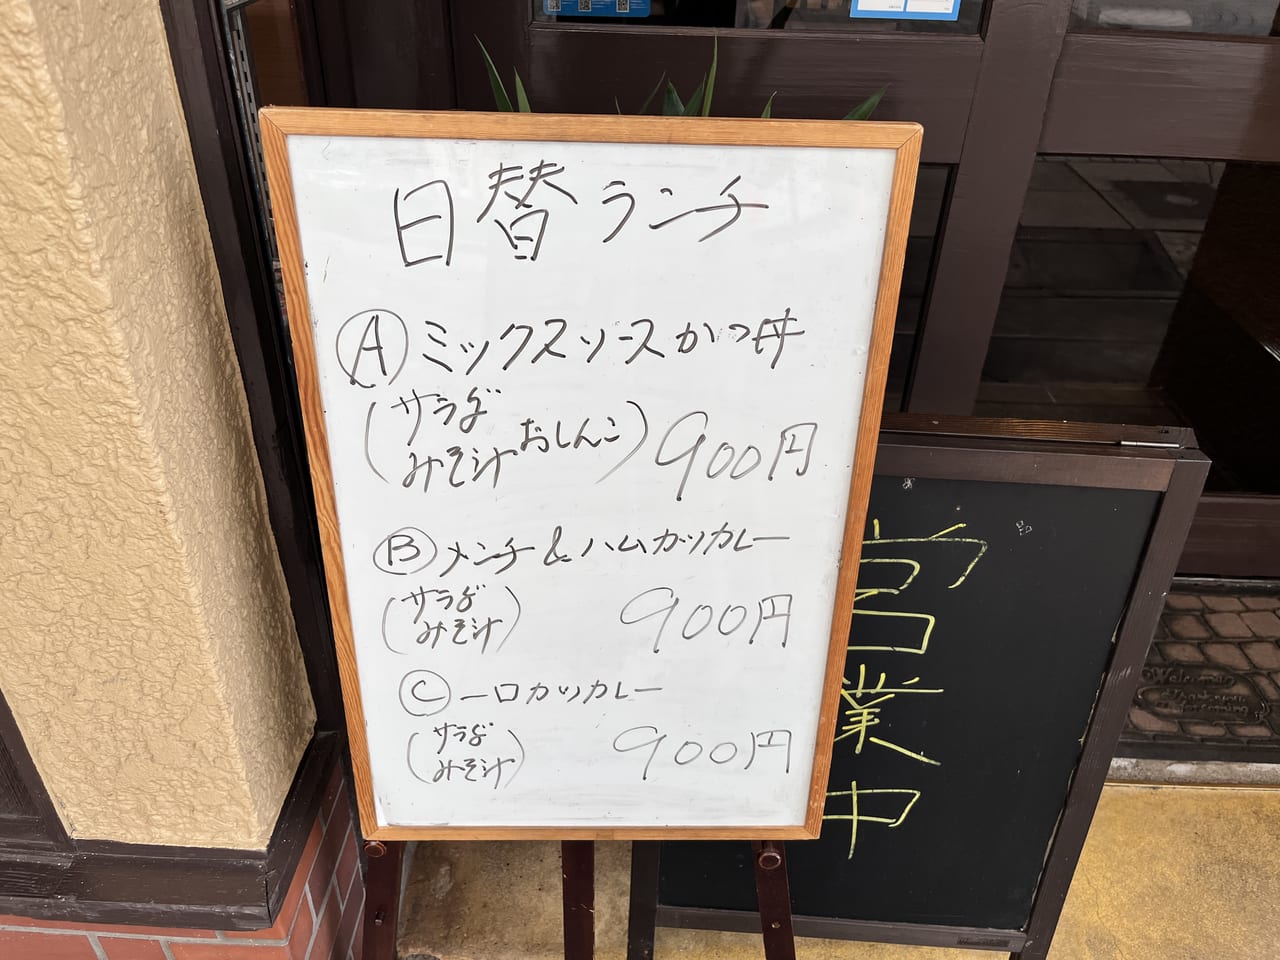 日替ランチ
Ⓐミックスソースかつ丼
(サラダ
みそ汁 おしんこ) 900円
Ⓑメンチ&ハムカツカレー
(サラダ
みそ汁) 900円
Ⓒ一口カツカレー
(サラダ
みそ汁) 900円
営業中
Welcome